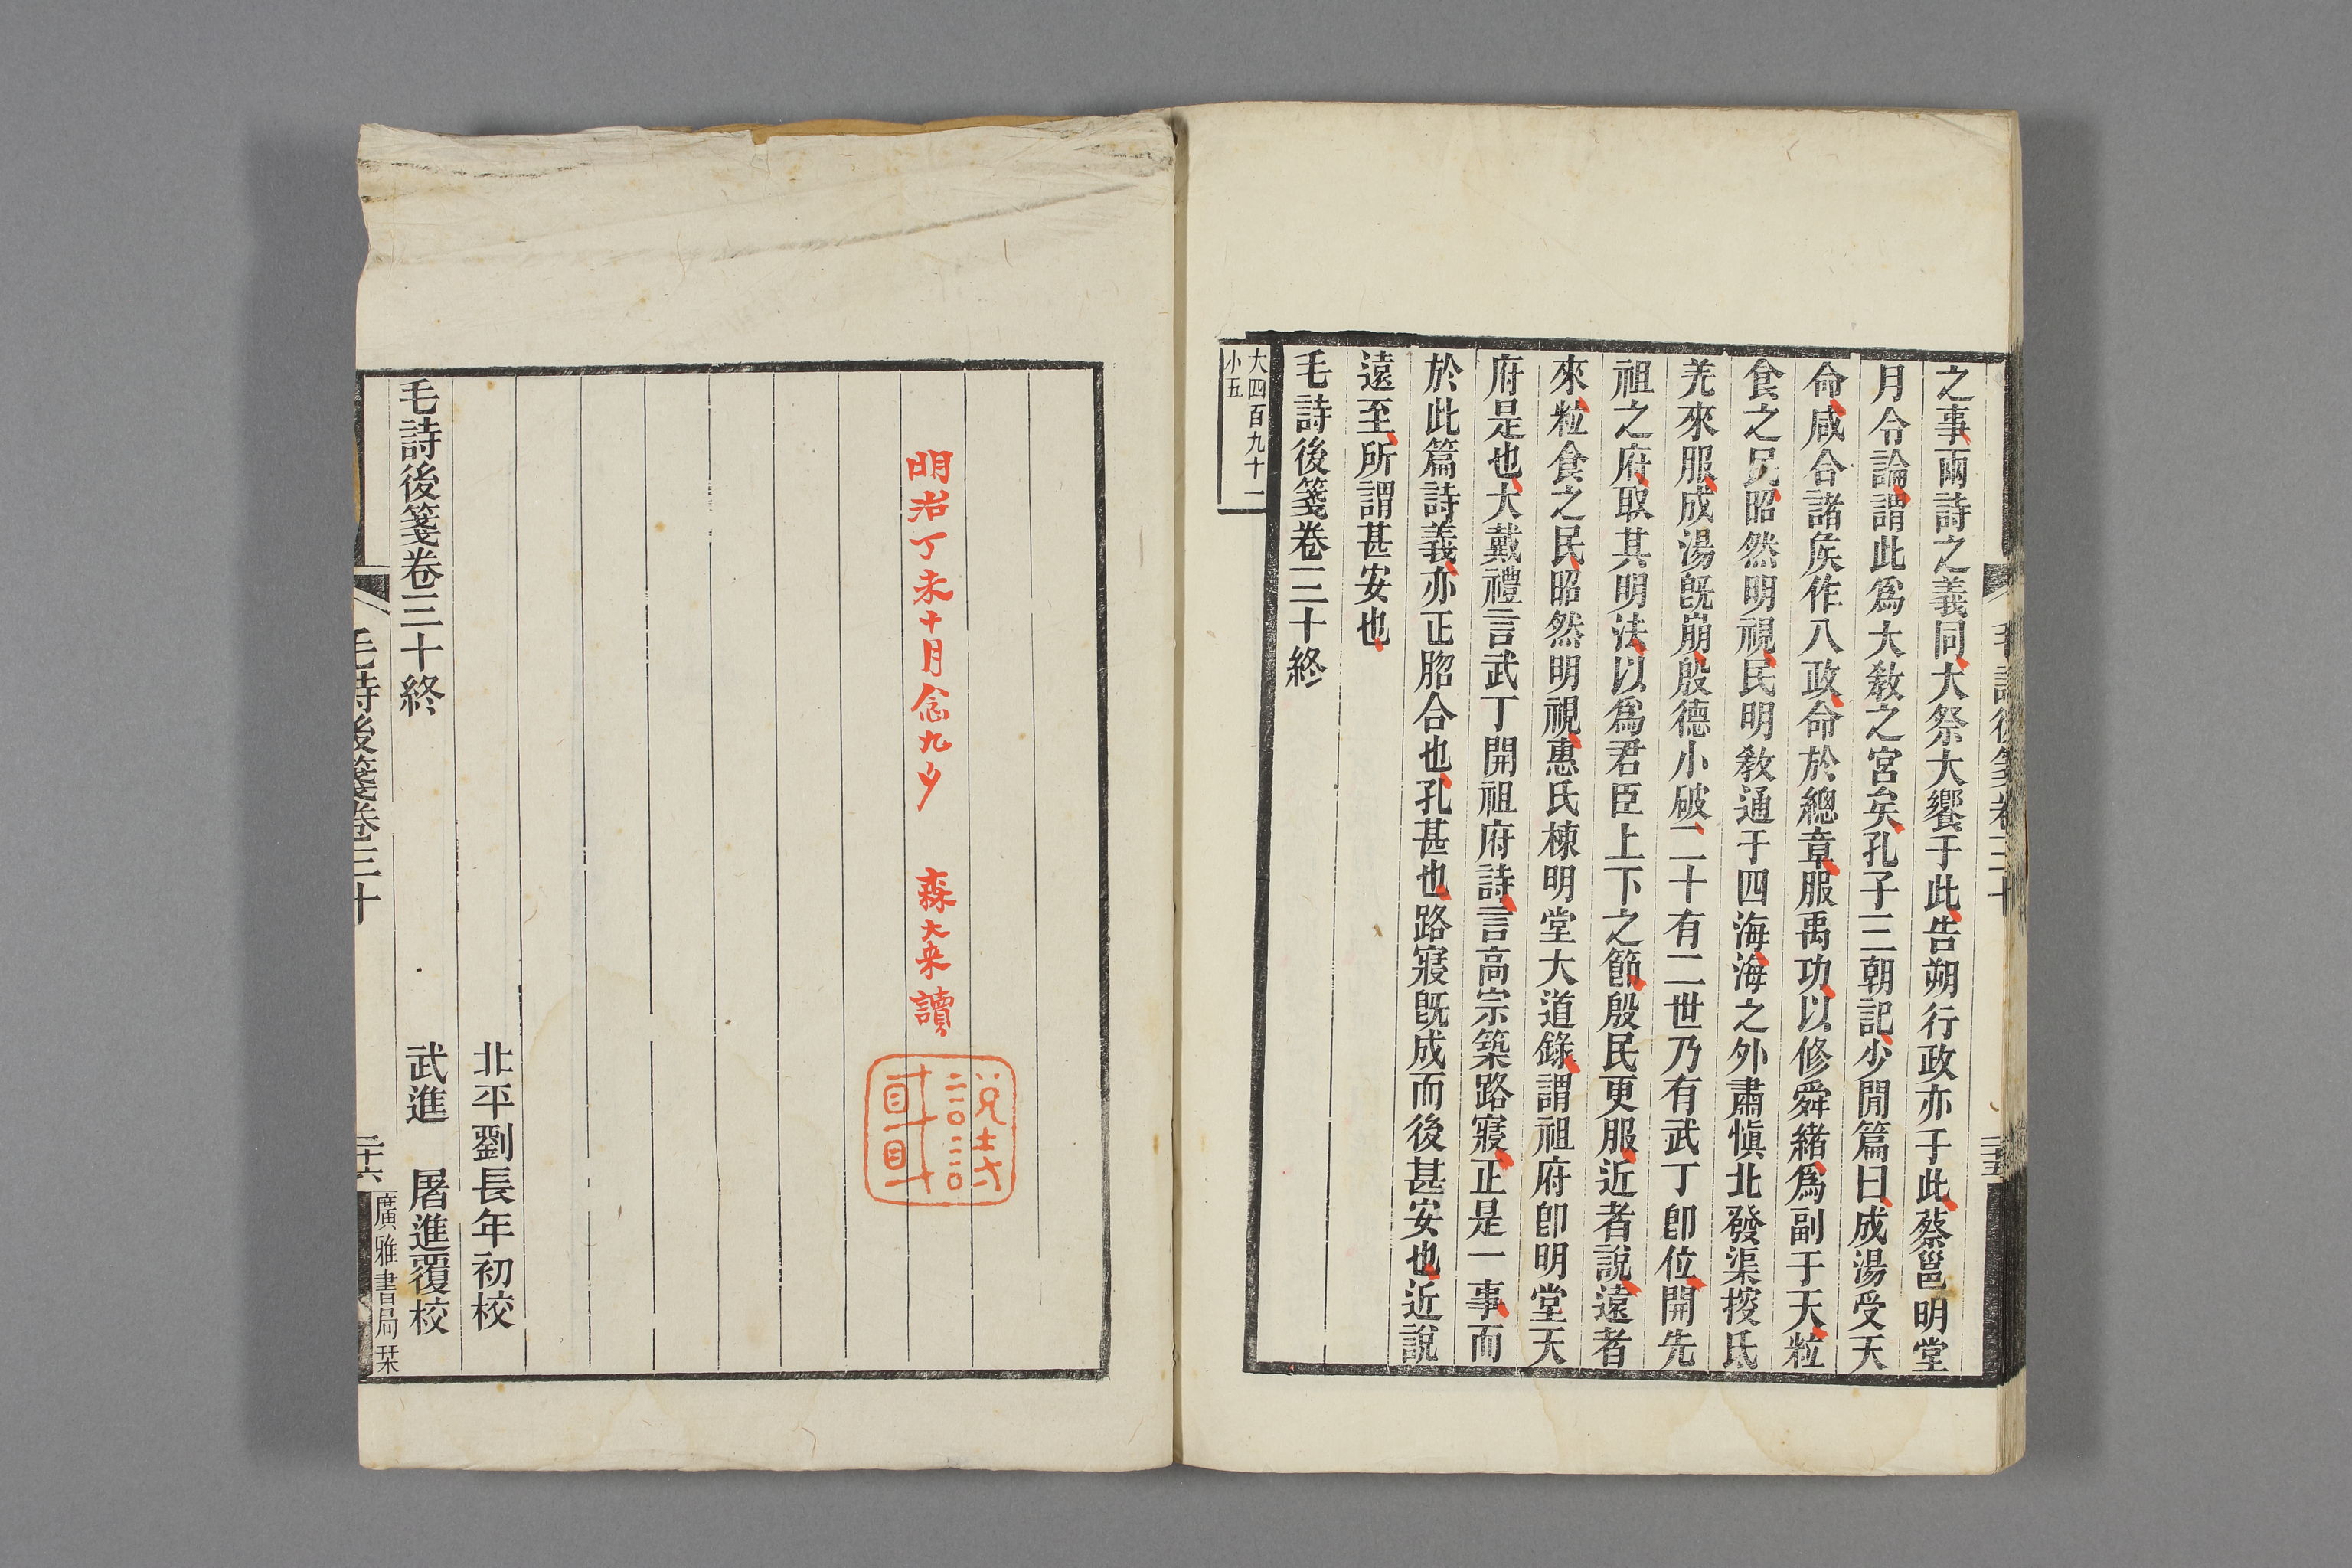 之事兩詩之義同大祭大饗于此告朔行政亦于此蔡邕明堂
月令論謂此爲大敎之宮矣孔子三朝記少閒篇曰成湯受天
命咸合諸矦作八政命於總章服禹功以修舜緖爲副于天粒
食之民昭然明視民明敎通于四海海之外肅愼北發渠搜氐
羌來服成湯旣崩殷德小破二十有二世乃有武丁卽位開先
祖之府取其明法以爲君臣上下之節殷民更服近者說遠者
來粒食之民昭然明視惠氏棟明堂大道錄謂祖府卽明堂天
府是也大戴禮言武丁開祖府詩言高宗築路寢正是一事而
於此篇詩義亦正脗合也孔甚也路寢旣成而後甚安也近說
遠至所謂甚安也
毛詩後箋卷三十終
大四百九十二
小五
明治丁未十月念九夕 森大來讀
說詩
北平劉長年初校
毛詩後箋卷三十終 武進 屠進覆校
毛詩後箋卷三十 二十六 廣雅書局栞